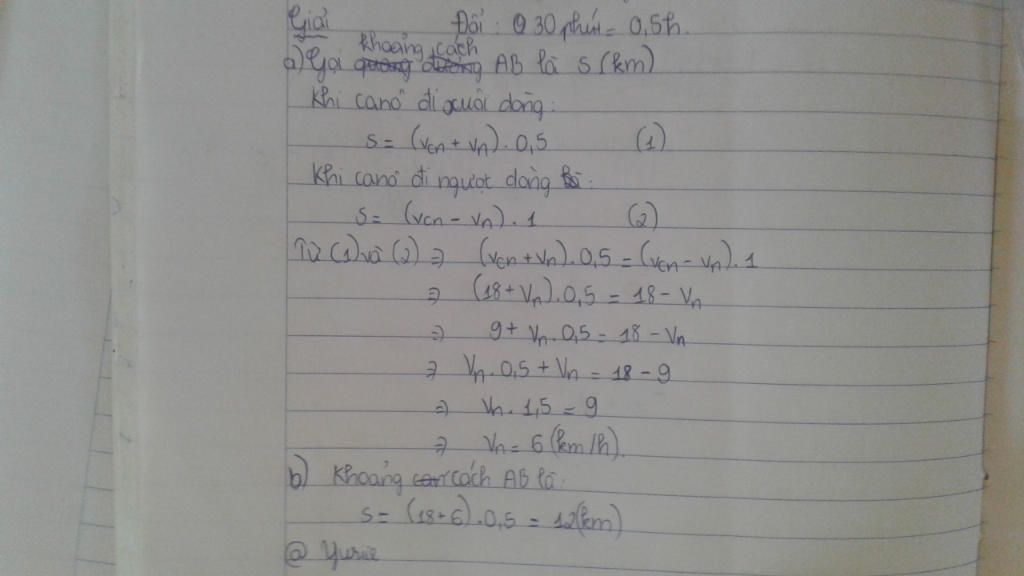 Giải Đổi : 30 phút = 0,5h.
khoảng cách
a) Gọi quãng đường AB là S (km)
Khi canô đi xuôi dòng:
S = (vcn + vn). 0,5 (1)
Khi canô đi ngược dòng :
S = (vcn - vn). 1 (2)
Từ (1) và (2) => (vcn + vn). 0,5 = (vcn - vn). 1
=> (18 + vn). 0,5 = 18 - vn
=> 9 + vn. 0,5 = 18 - vn
=> vn. 0,5 + vn = 18 - 9
=> vn. 1,5 = 9
=> vn = 6 (km/h).
b) Khoảng cách AB là:
S = (18+6). 0,5 = 12(km)
@ Yurie